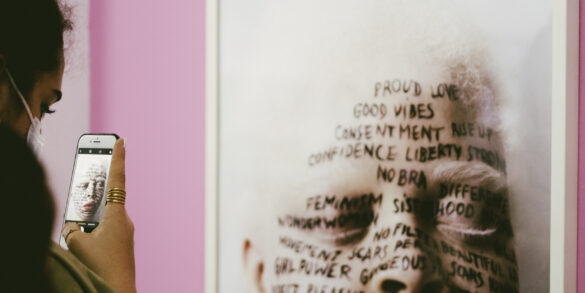 PROUD LOVE
GOOD VIBES
CONSENTMENT RISE UP
CONFIDENCE LIBERTY STRONG
NO BRA
DIFFERENCE
FEMINISM SISTERHOOD
WONDERWOMAN
NO FILTER
MOVEMENT SCARS PERF BEAUTIFUL
GIRLPOWER GORGEOUS SCARS